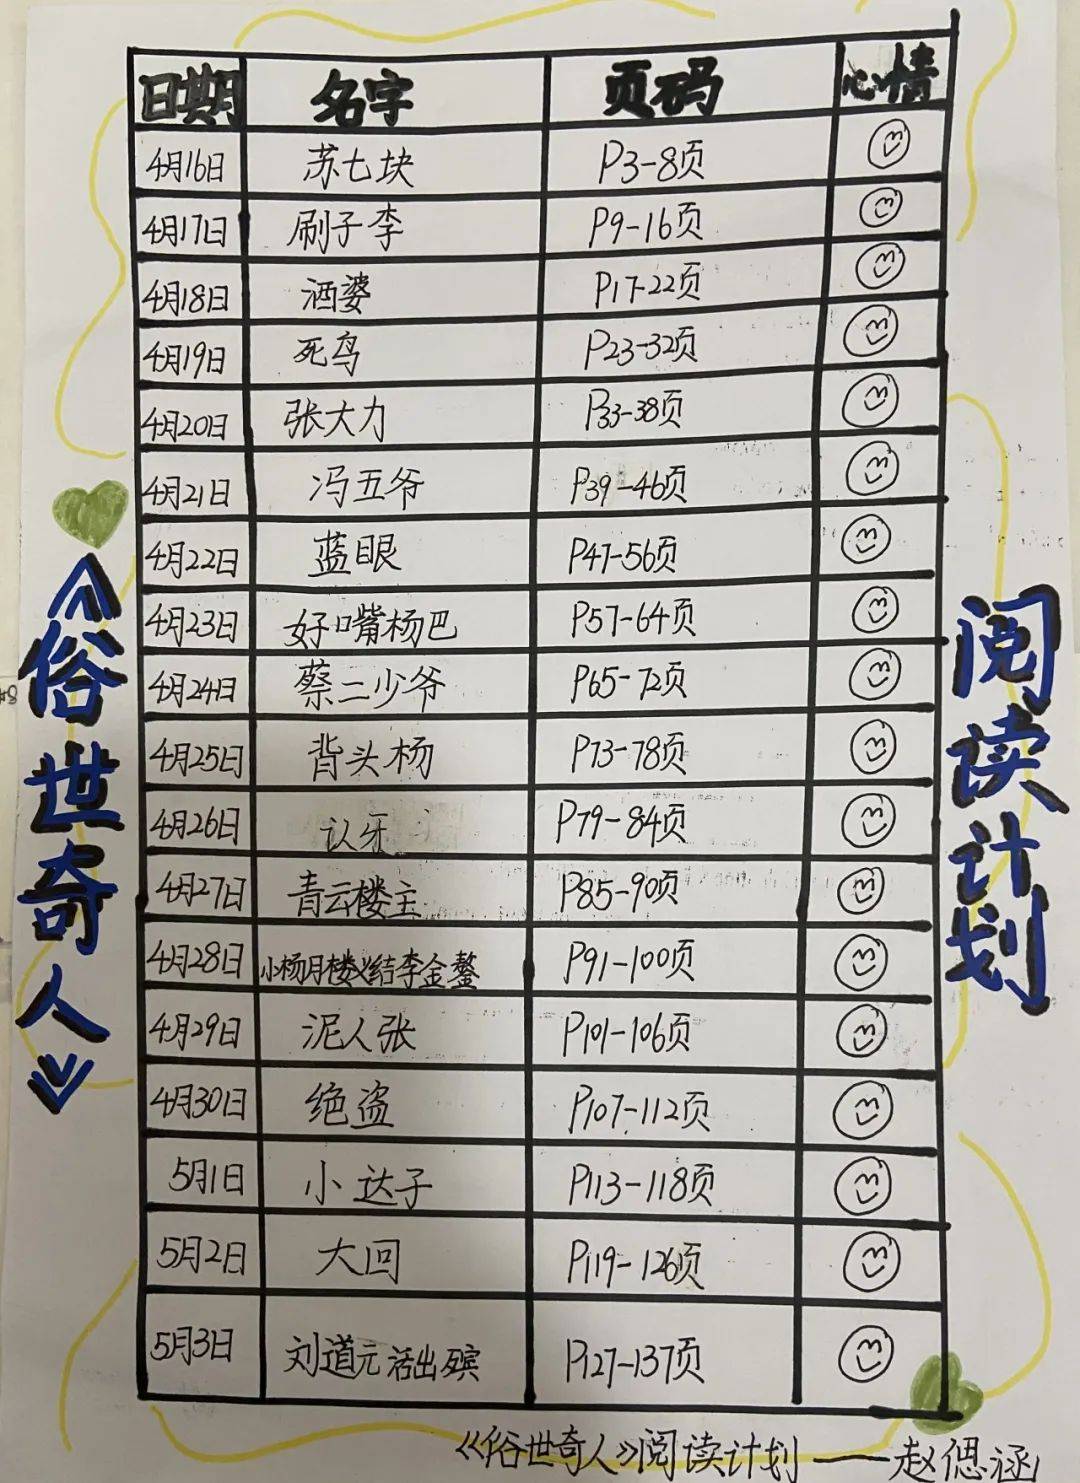 日期 名字 页码 心情
4月16日 苏七块 P3-8页
4月17日 刷子李 P9-16页
4月18日 酒婆 P17-22页
4月19日 死鸟 P23-32页
4月20日 张大力 P33-38页
4月21日 冯五爷 P39-46页
4月22日 蓝眼 P47-56页
4月23日 好口嘴杨巴 P57-64页
4月24日 蔡二少爷 P65-72页
4月25日 背头杨 P73-78页
4月26日 认牙 P79-84页
4月27日 青云楼主 P85-90页
4月28日 小杨月楼义结李金鳌 P91-100页
4月29日 泥人张 P101-106页
4月30日 绝盗 P107-112页
5月1日 小达子 P113-118页
5月2日 大回 P119-126页
5月3日 刘道元活出殡 P127-137页
《俗世奇人》
阅读计划
《俗世奇人》阅读计划——赵偲涵